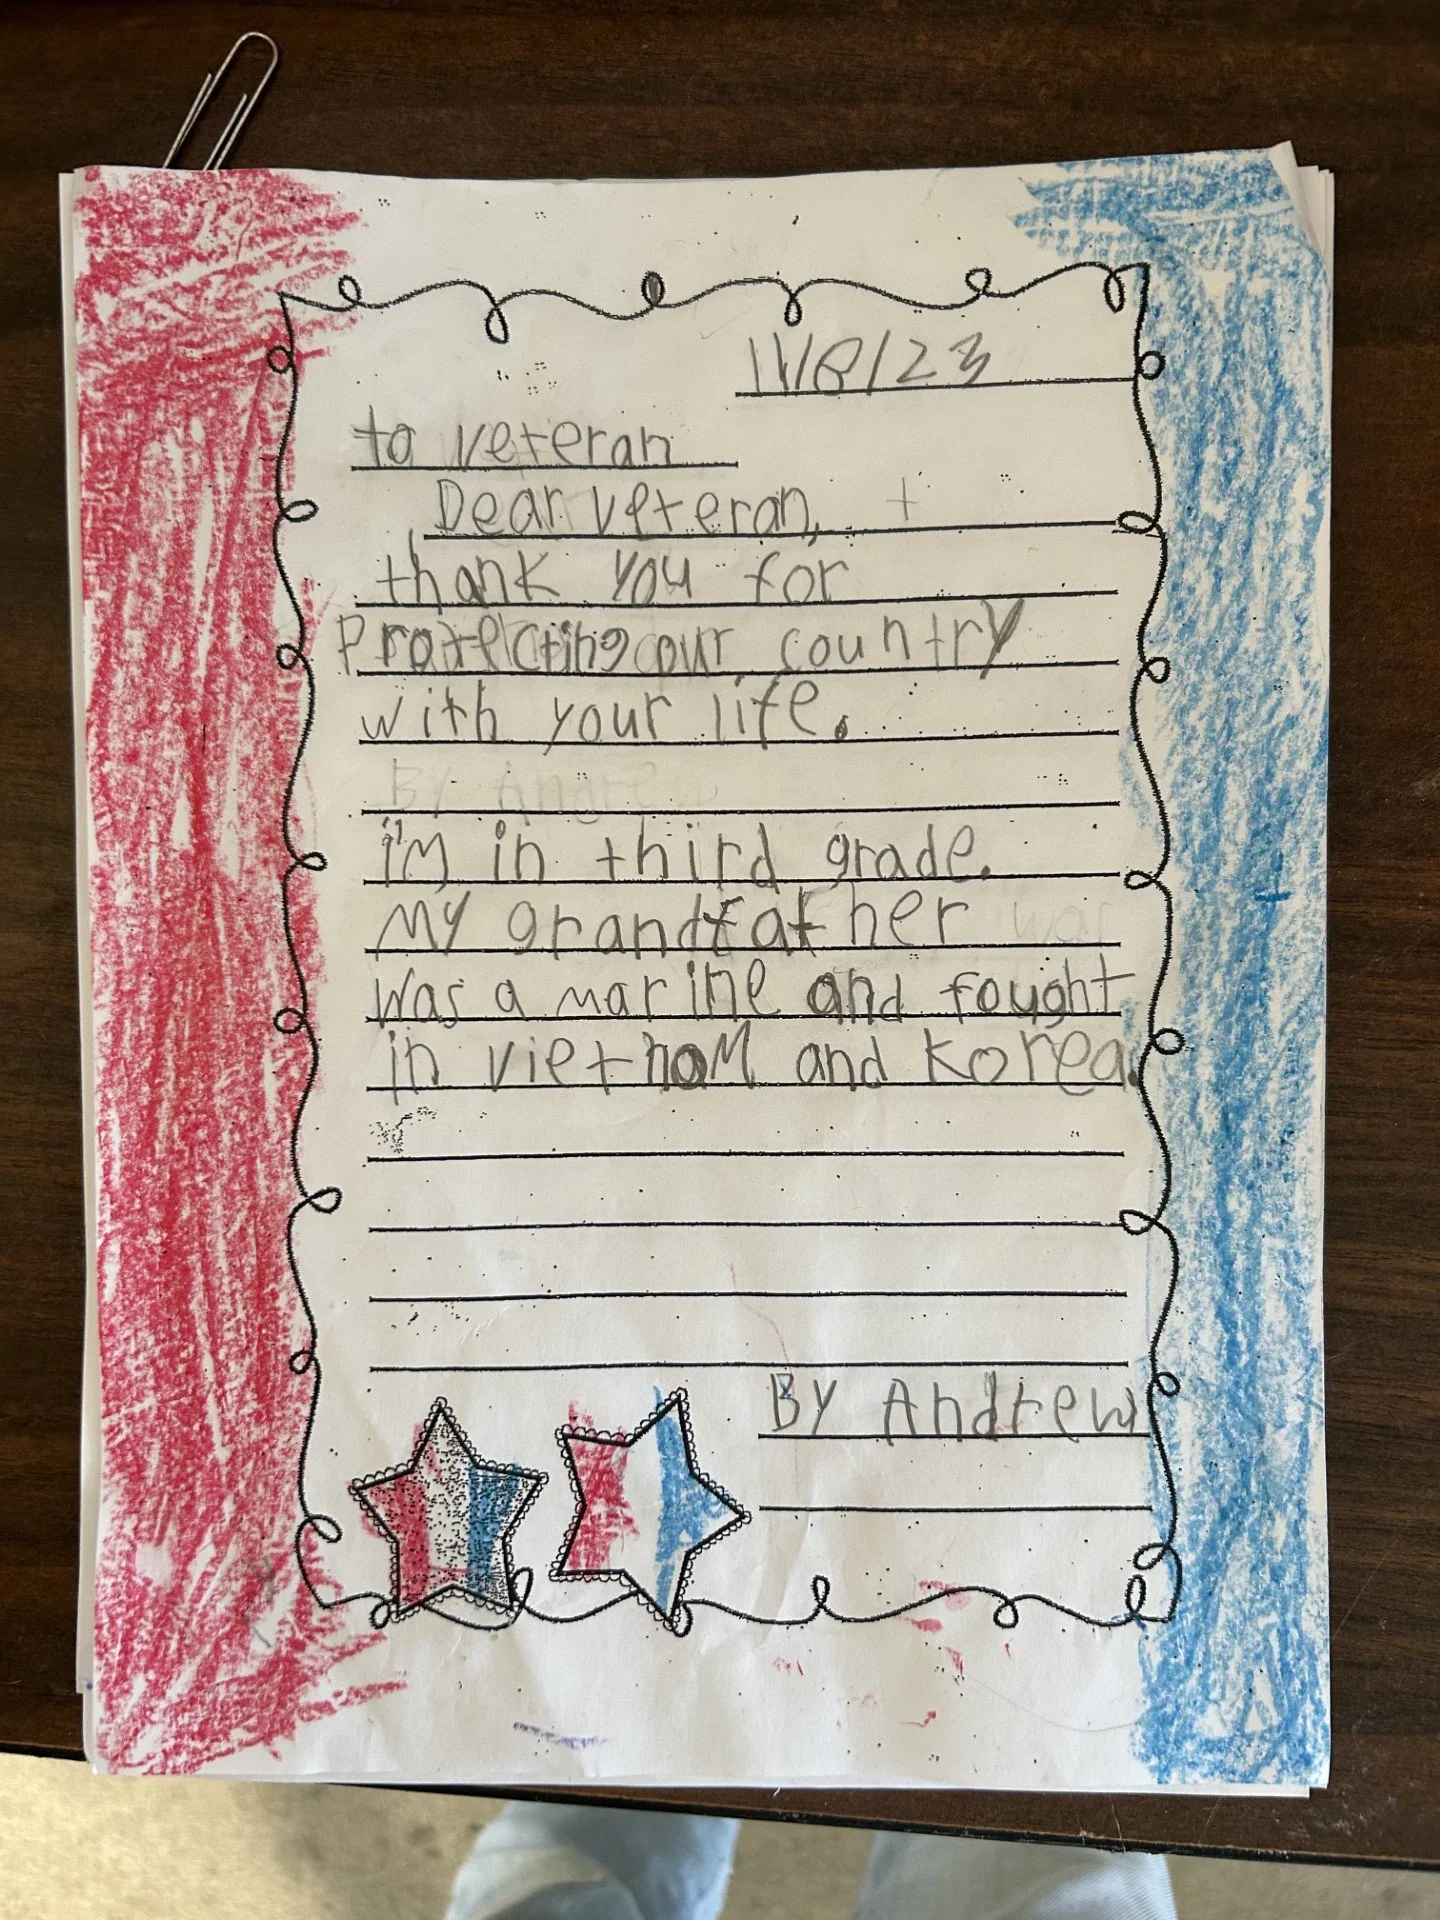 11/8/23
to veteran
Dear veteran,
thank you for
Protecting our country
with your life.
By Andrew
i'm in third grade.
My grandfather was
was a marine and fought
in vietnam and Korea.
By Andrew